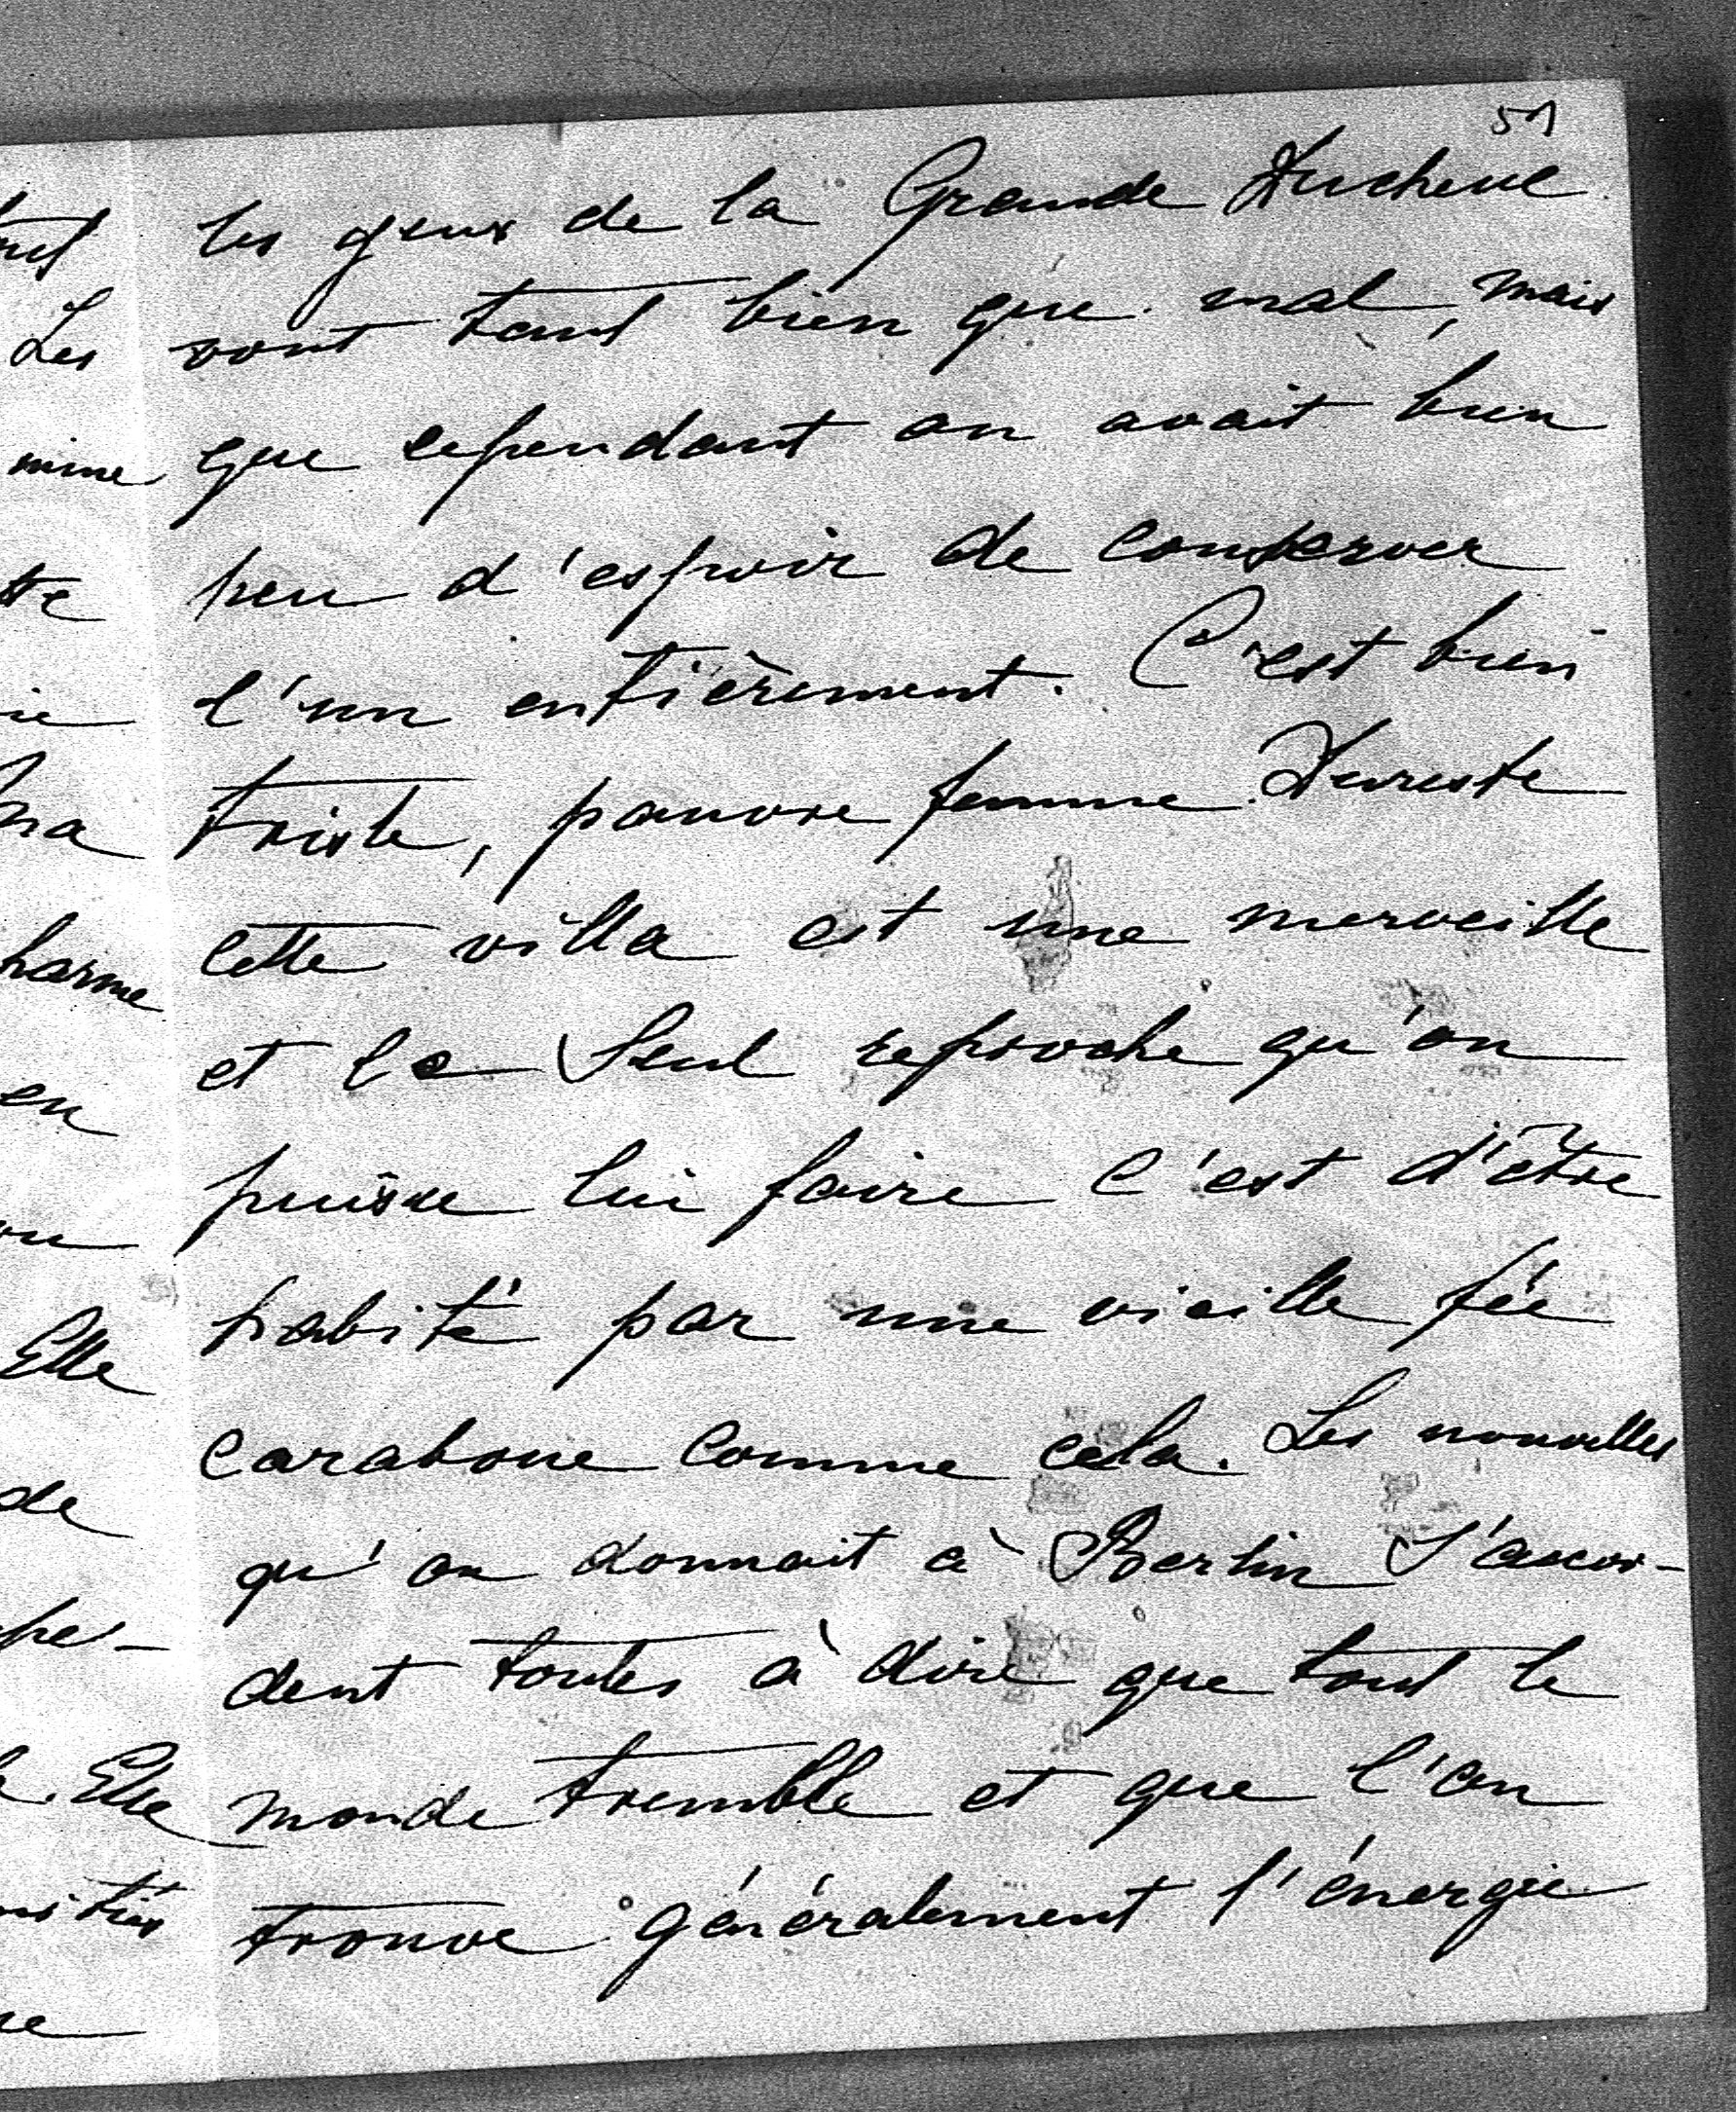 51
les yeux de la Grande Duchesse
vont tant bien que mal, mais
que cependant on avait bien
peu d'espoir de conserver
l'un entièrement. C'est bien
triste, pauvre femme. Dureste
cette villa est une merveille
et le seul reproche qu'on
puisse lui faire c'est d'être
habité par une vieille fée
carabosse comme cela. Les nouvelles
qu'on donnait à Berlin s'accor-
dent toutes à dire que tout le
monde tremble et que l'on
trouve généralement l'énergie